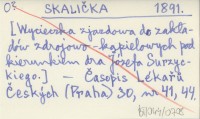 03 SKALIČKA 1891.
[Wycieczka zjazdowa do zakła-
dów zdrojowo-kąpielowych pod
kierunkiem dra Józefa Surzyc-
kiego.] — Časopis Lékařů
Českých (Praha) 30, nr. 41, 44.